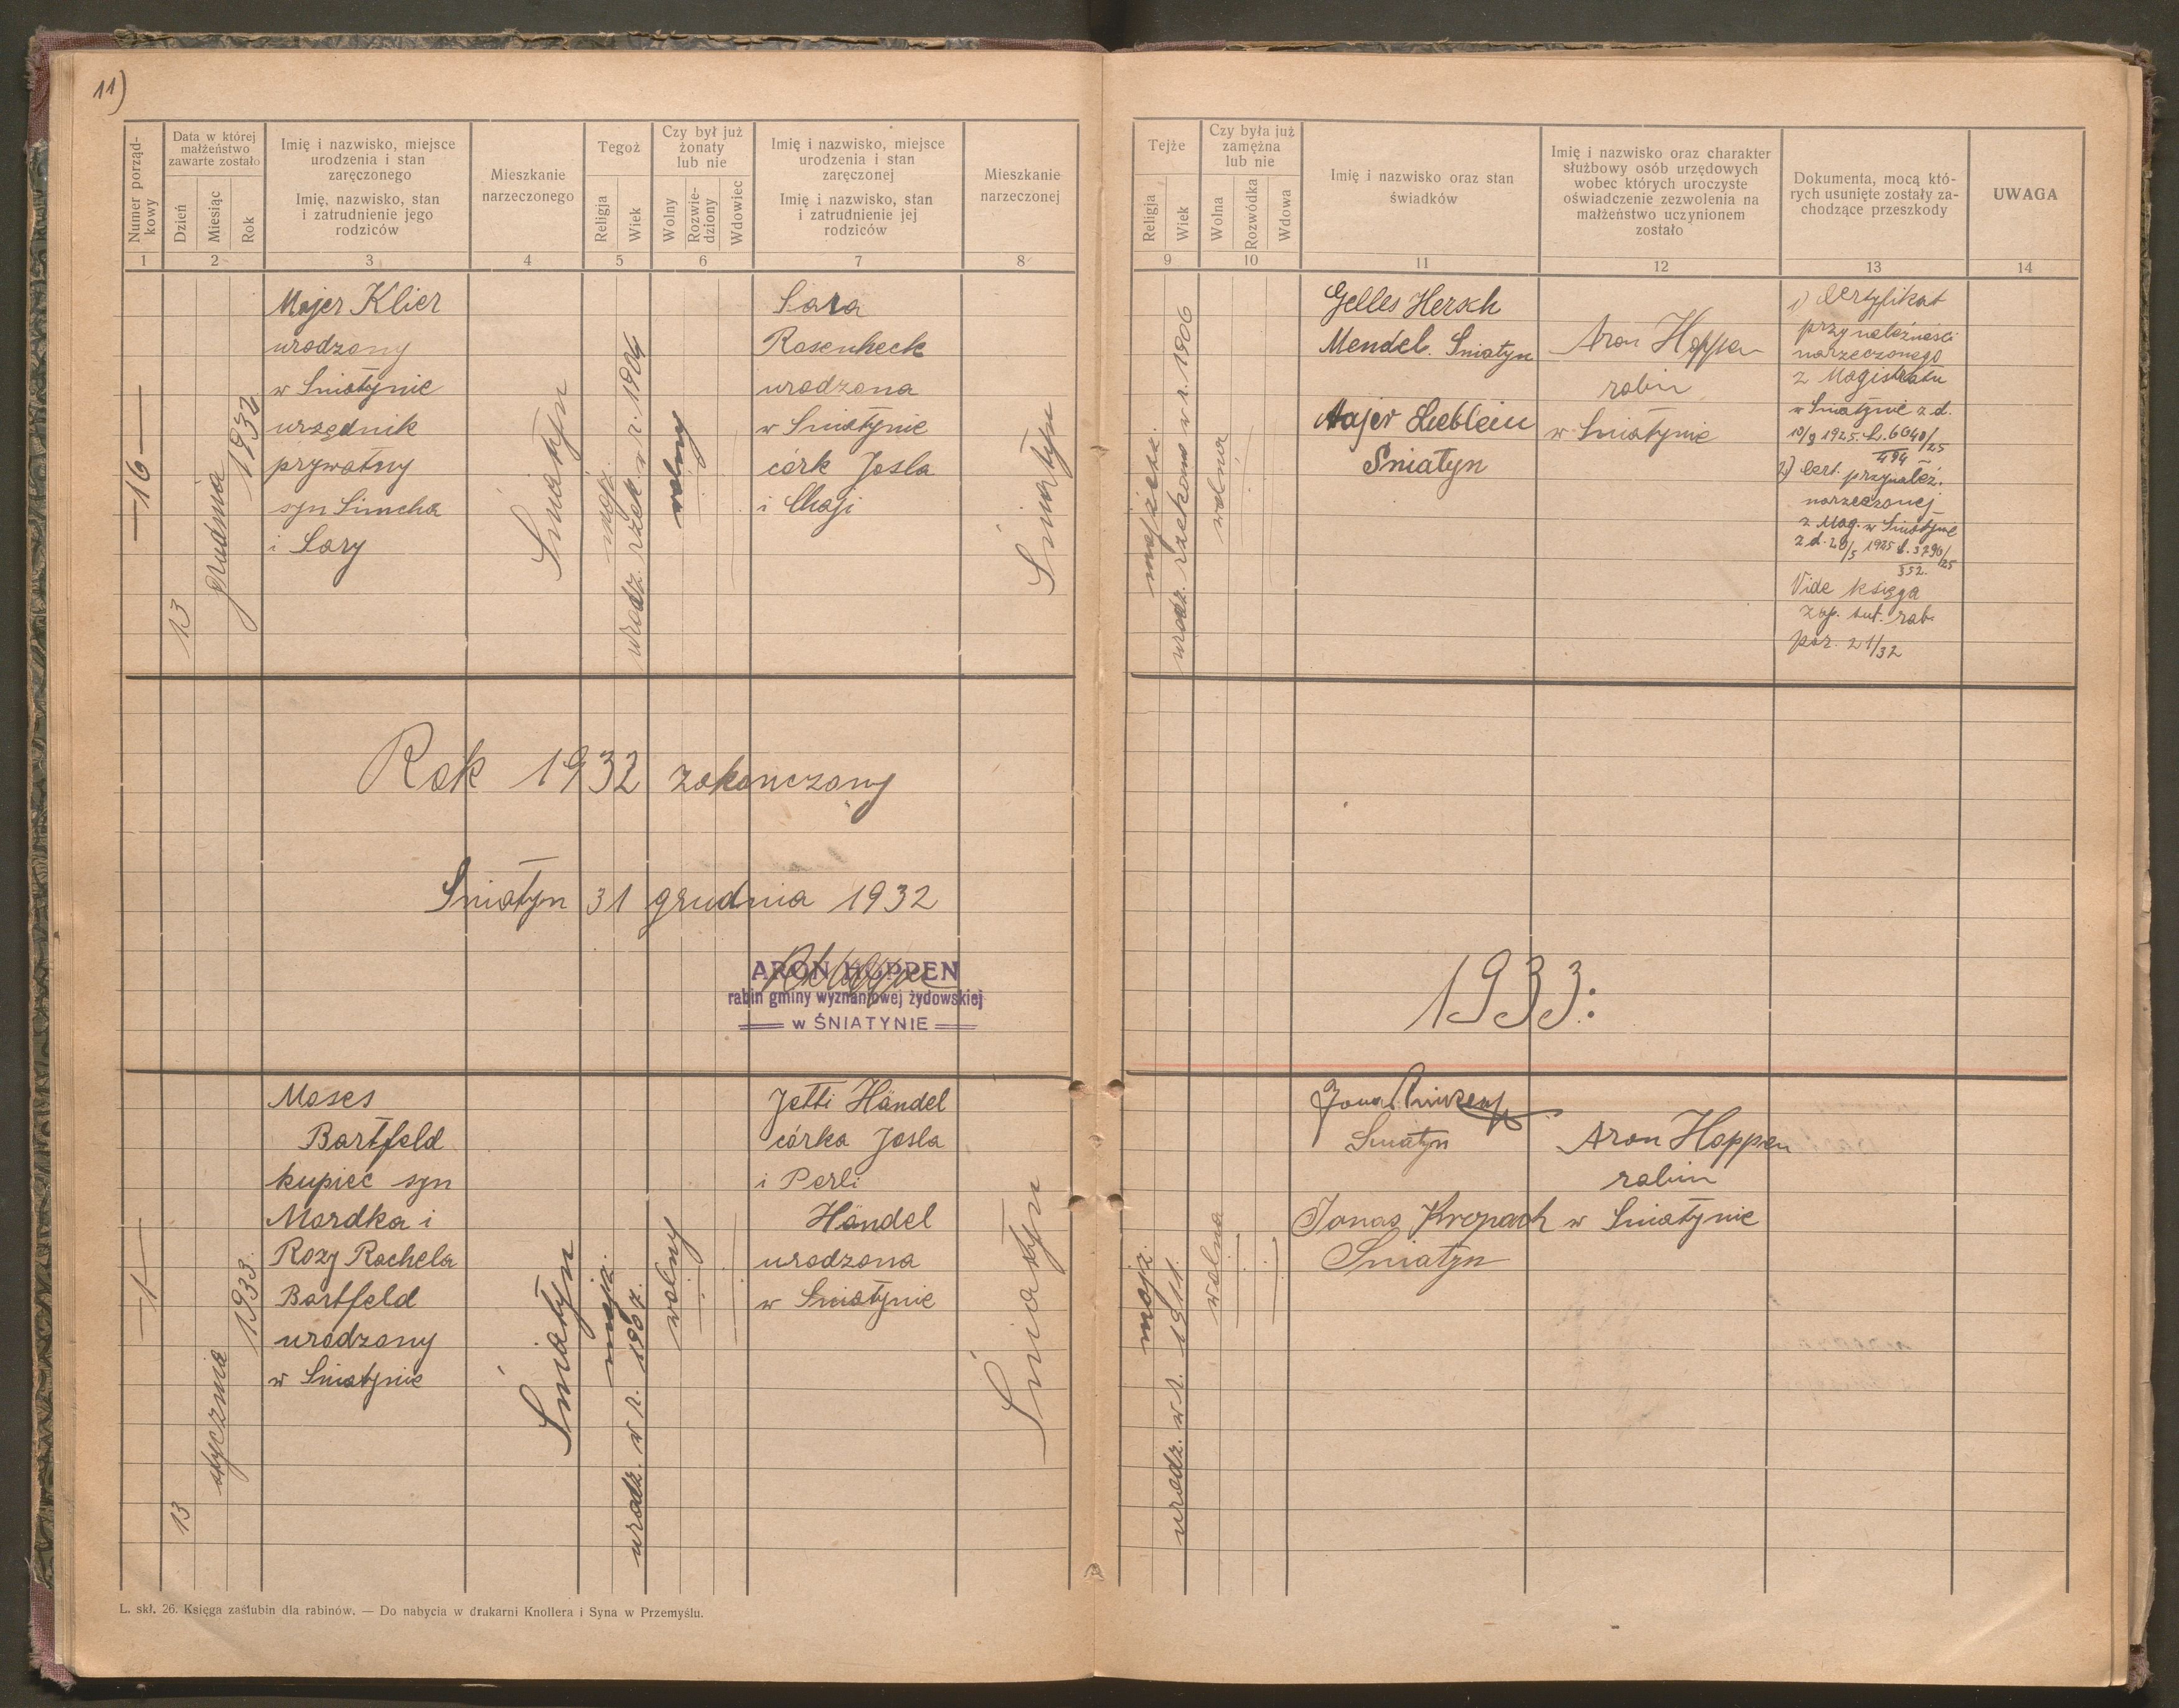 11)
Numer porząd-
kowy
Data w której
małżeństwo
zawarte zostało
Dzień
Miesiąc
Rok
Imię i nazwisko, miejsce
urodzenia i stan
zaręczonego
Imię, nazwisko, stan
i zatrudnienie jego
rodziców
Mieszkanie
narzeczonego
Tegoż
Religja
Wiek
Czy był już
żonaty
lub nie
Wolny
Rozwie-
dziony
Wdowiec
Imię i nazwisko, miejsce
urodzenia i stan
zaręczonej
Imię i nazwisko, stan
i zatrudnienie jej
rodziców
Mieszkanie
narzeczonej
1 2 3 4 5 6 7 8
—16—
13
grudnia
1932
Majer Klier
urodzony
w Sniatynie
urzędnik
prywatny
syn Simcha
i Sary
Śniatyn
mojż.
urodz. rzek. w r. 1906
wolny
Sara
Rosenheck
urodzona
w Sniatynie
córk Josla
i Chaji
Śniatyn
Rok 1932 zakończony
Śniatyn 31 grudnia 1932
ARON HOPPEN
rabin gminy wyznaniowej żydowskiej
w ŚNIATYNIE
—1—
13
stycznia
1933.
Moses
Bartfeld
kupiec syn
Mordka i
Rozy Rachela
Bartfeld
urodzony
w Sniatynie
Śniatyn
mojż.
urodz. w r. 1907.
wolny
Jetti Händel
córka Josla
i Perli
Händel
urodzona
w Sniatynie
Śniatyn
L. skł. 26. Księga zaślubin dla rabinów. — Do nabycia w drukarni Knollera i Syna w Przemyślu.
Tejże
Religia
Wiek
Czy była już
zamężna
lub nie
Wolna
Rozwódka
Wdowa
Imię i nazwisko oraz stan
świadków
Imię i nazwisko oraz charakter
służbowy osób urzędowych
wobec których uroczyste
oświadczenie zezwolenia na
małżeństwo uczynionem
zostało
Dokumenta, mocą któ-
rych usunięte zostały za-
chodzące przeszkody
UWAGA
9 10 11 12 13 14
mojżesz.
urodz. rzekomo w r. 1906
wolna
Gelles Hersch
Mendel. Sniatyn
Majer Lieblein
Sniatyn
Aron Hoppen
rabin
w Sniatynie
1) Certyfikat
przynależności
narzeczonego
z Magistratu
w Sniatynie z d.
10/9 1925. L. 6640/25
494
2) Cert. przynależ.
narzeczonej
z Mag. w Sniatynie
z d. 20/5 1925 L. 3790/25
552.
Vide księga
zap. tut. rab.
poz. 21/32
1933:
mojż.
urodz. w r. 1911.
wolna
Jona
Sniatyn
Jonas Kropach
Sniatyn
Aron Hoppen
rabin
w Sniatynie